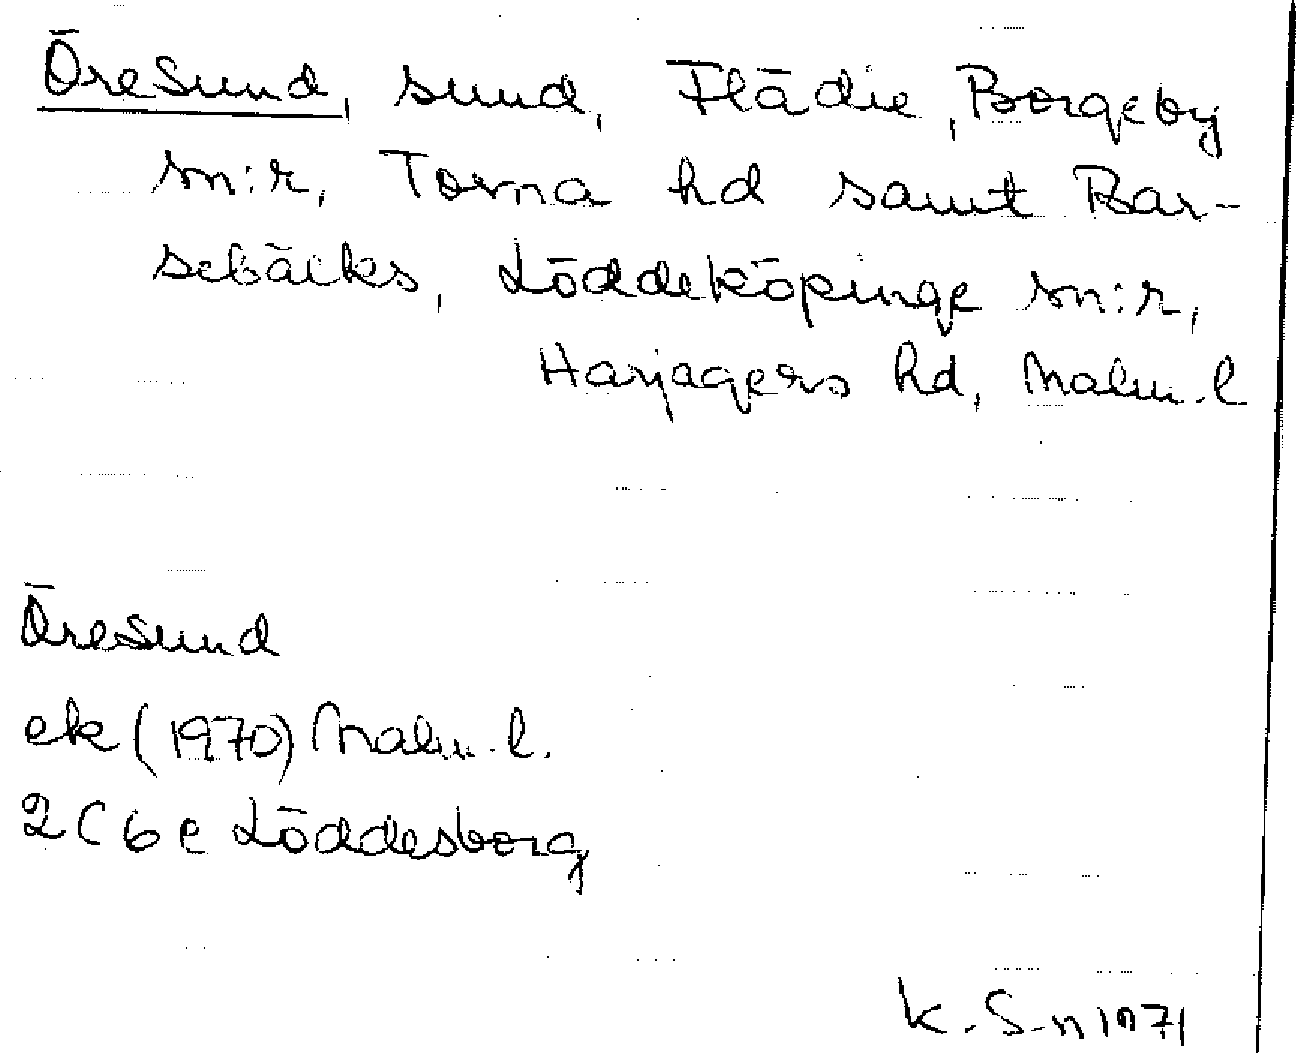 Öresund, sund, Flädie, Borgeby
sn:r, Torna hd samt Bar-
sebäcks, Löddeköpinge sn:r,
Harjagers hd, Malm. l
Öresund
ek (1970) Malm. l.
2C6e Löddesborg
K. S-n 1971